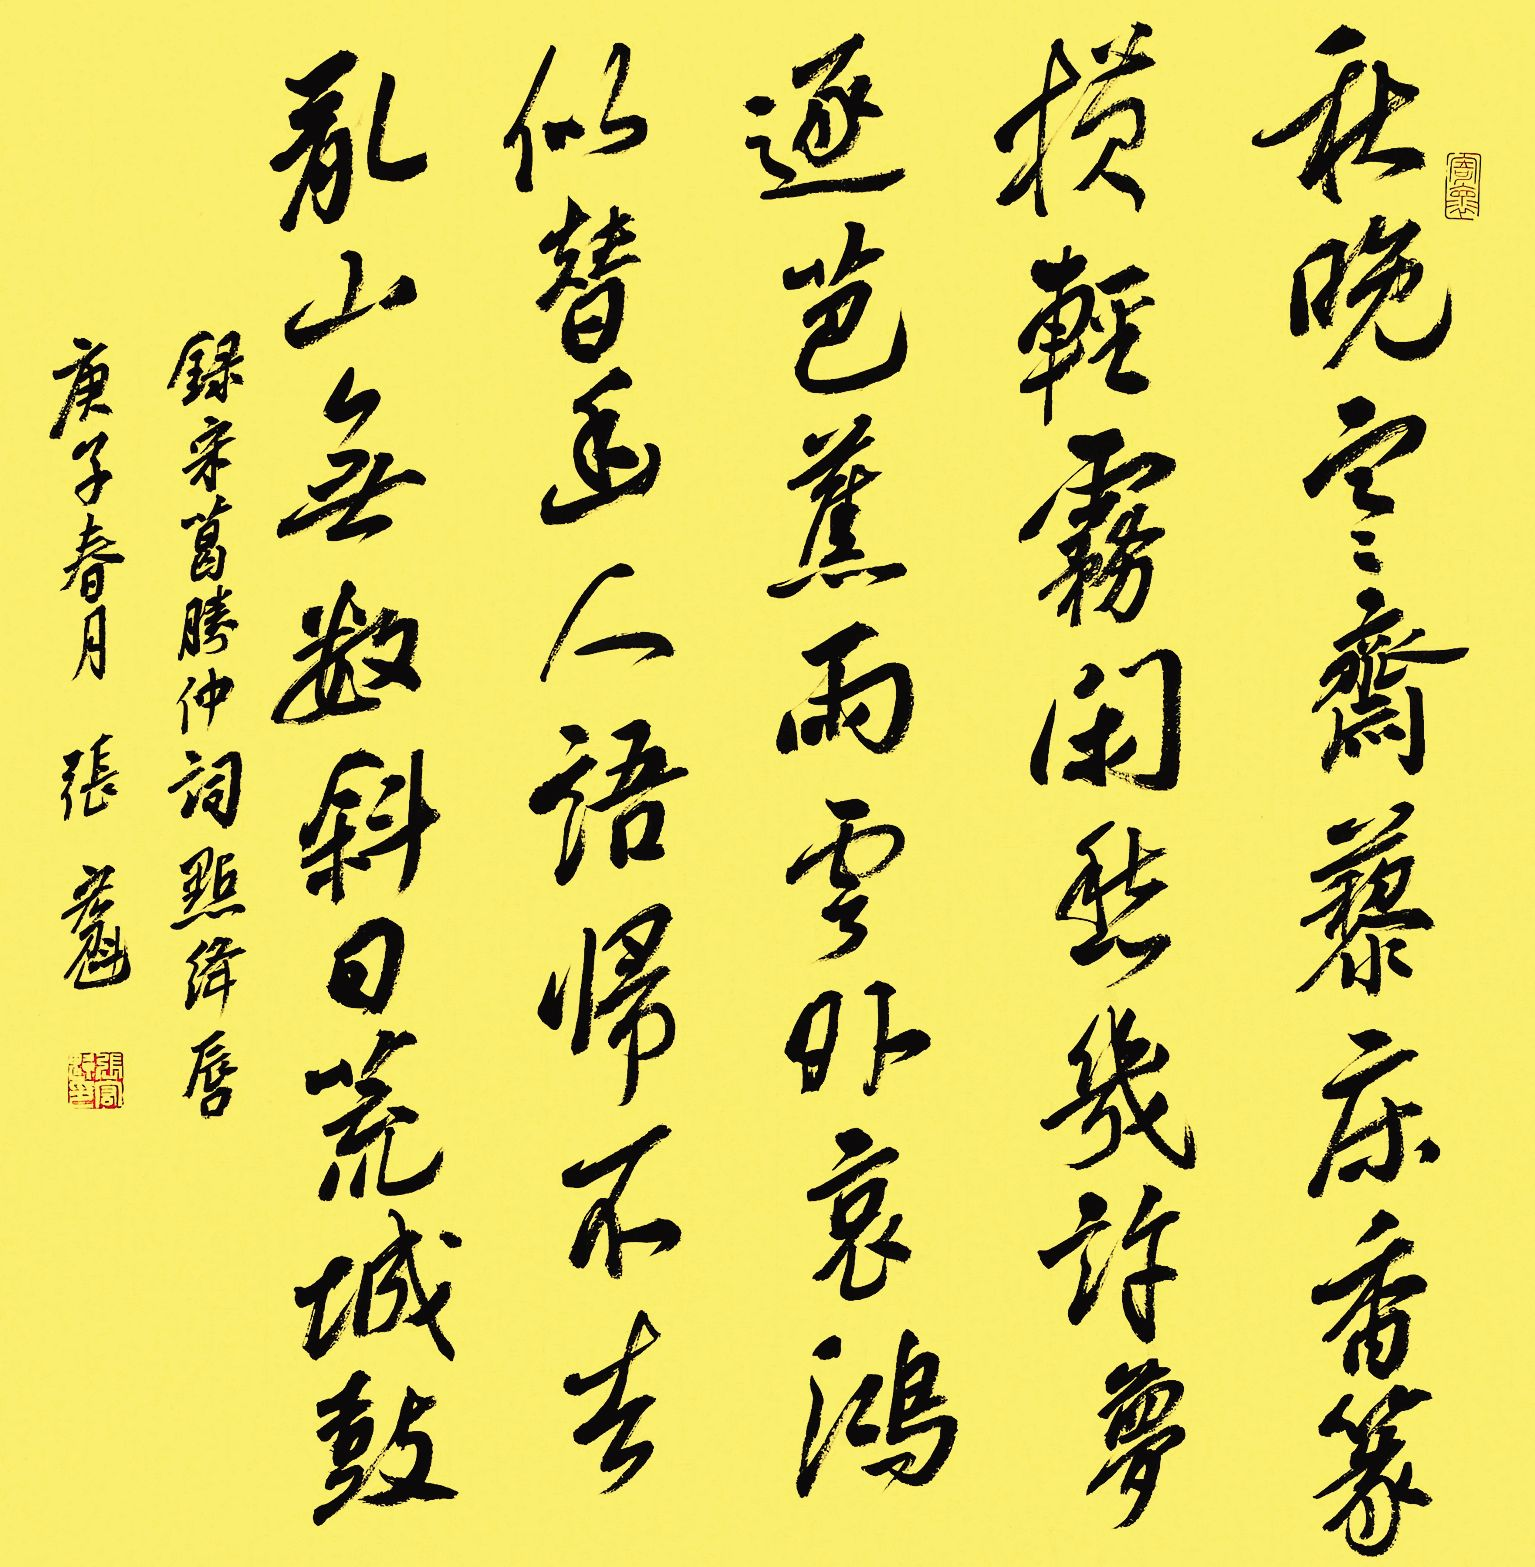 秋晚寒齋藜床香篆
横輕霧闲愁幾許夢
逐芭蕉雨雲外哀鴻
似替幽人語帰不去
亂山無数斜日荒城鼓
録宋葛勝仲詞點绛唇
庚子春月 張宏魁